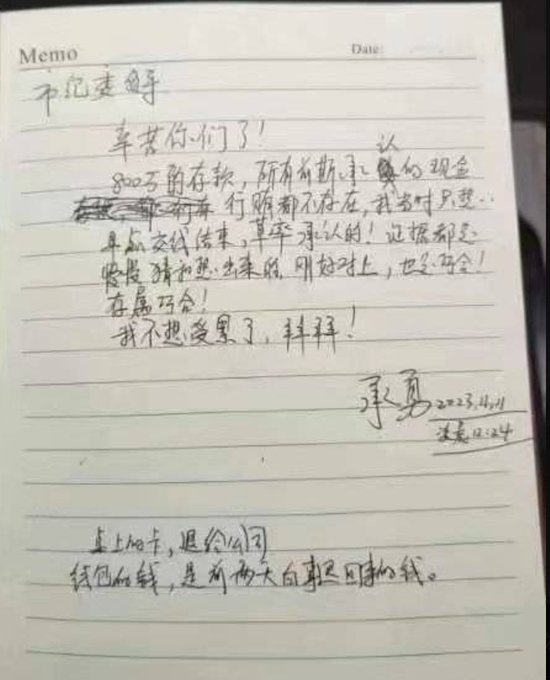 Memo
Date:
市纪委
辛苦你们了！
认
800万的存款，所有前期承的现金
行贿都不存在，我当时只想
早点交线结束，草率承认的！证据都是
慢慢猜和想出来的，刚好对上，也是巧合！
存属巧合！
我不想受累了，拜拜！
承勇 2023.11.11
凌晨12:24
桌上的卡，退给公司
钱包的钱，是前两天白事退回来的钱。